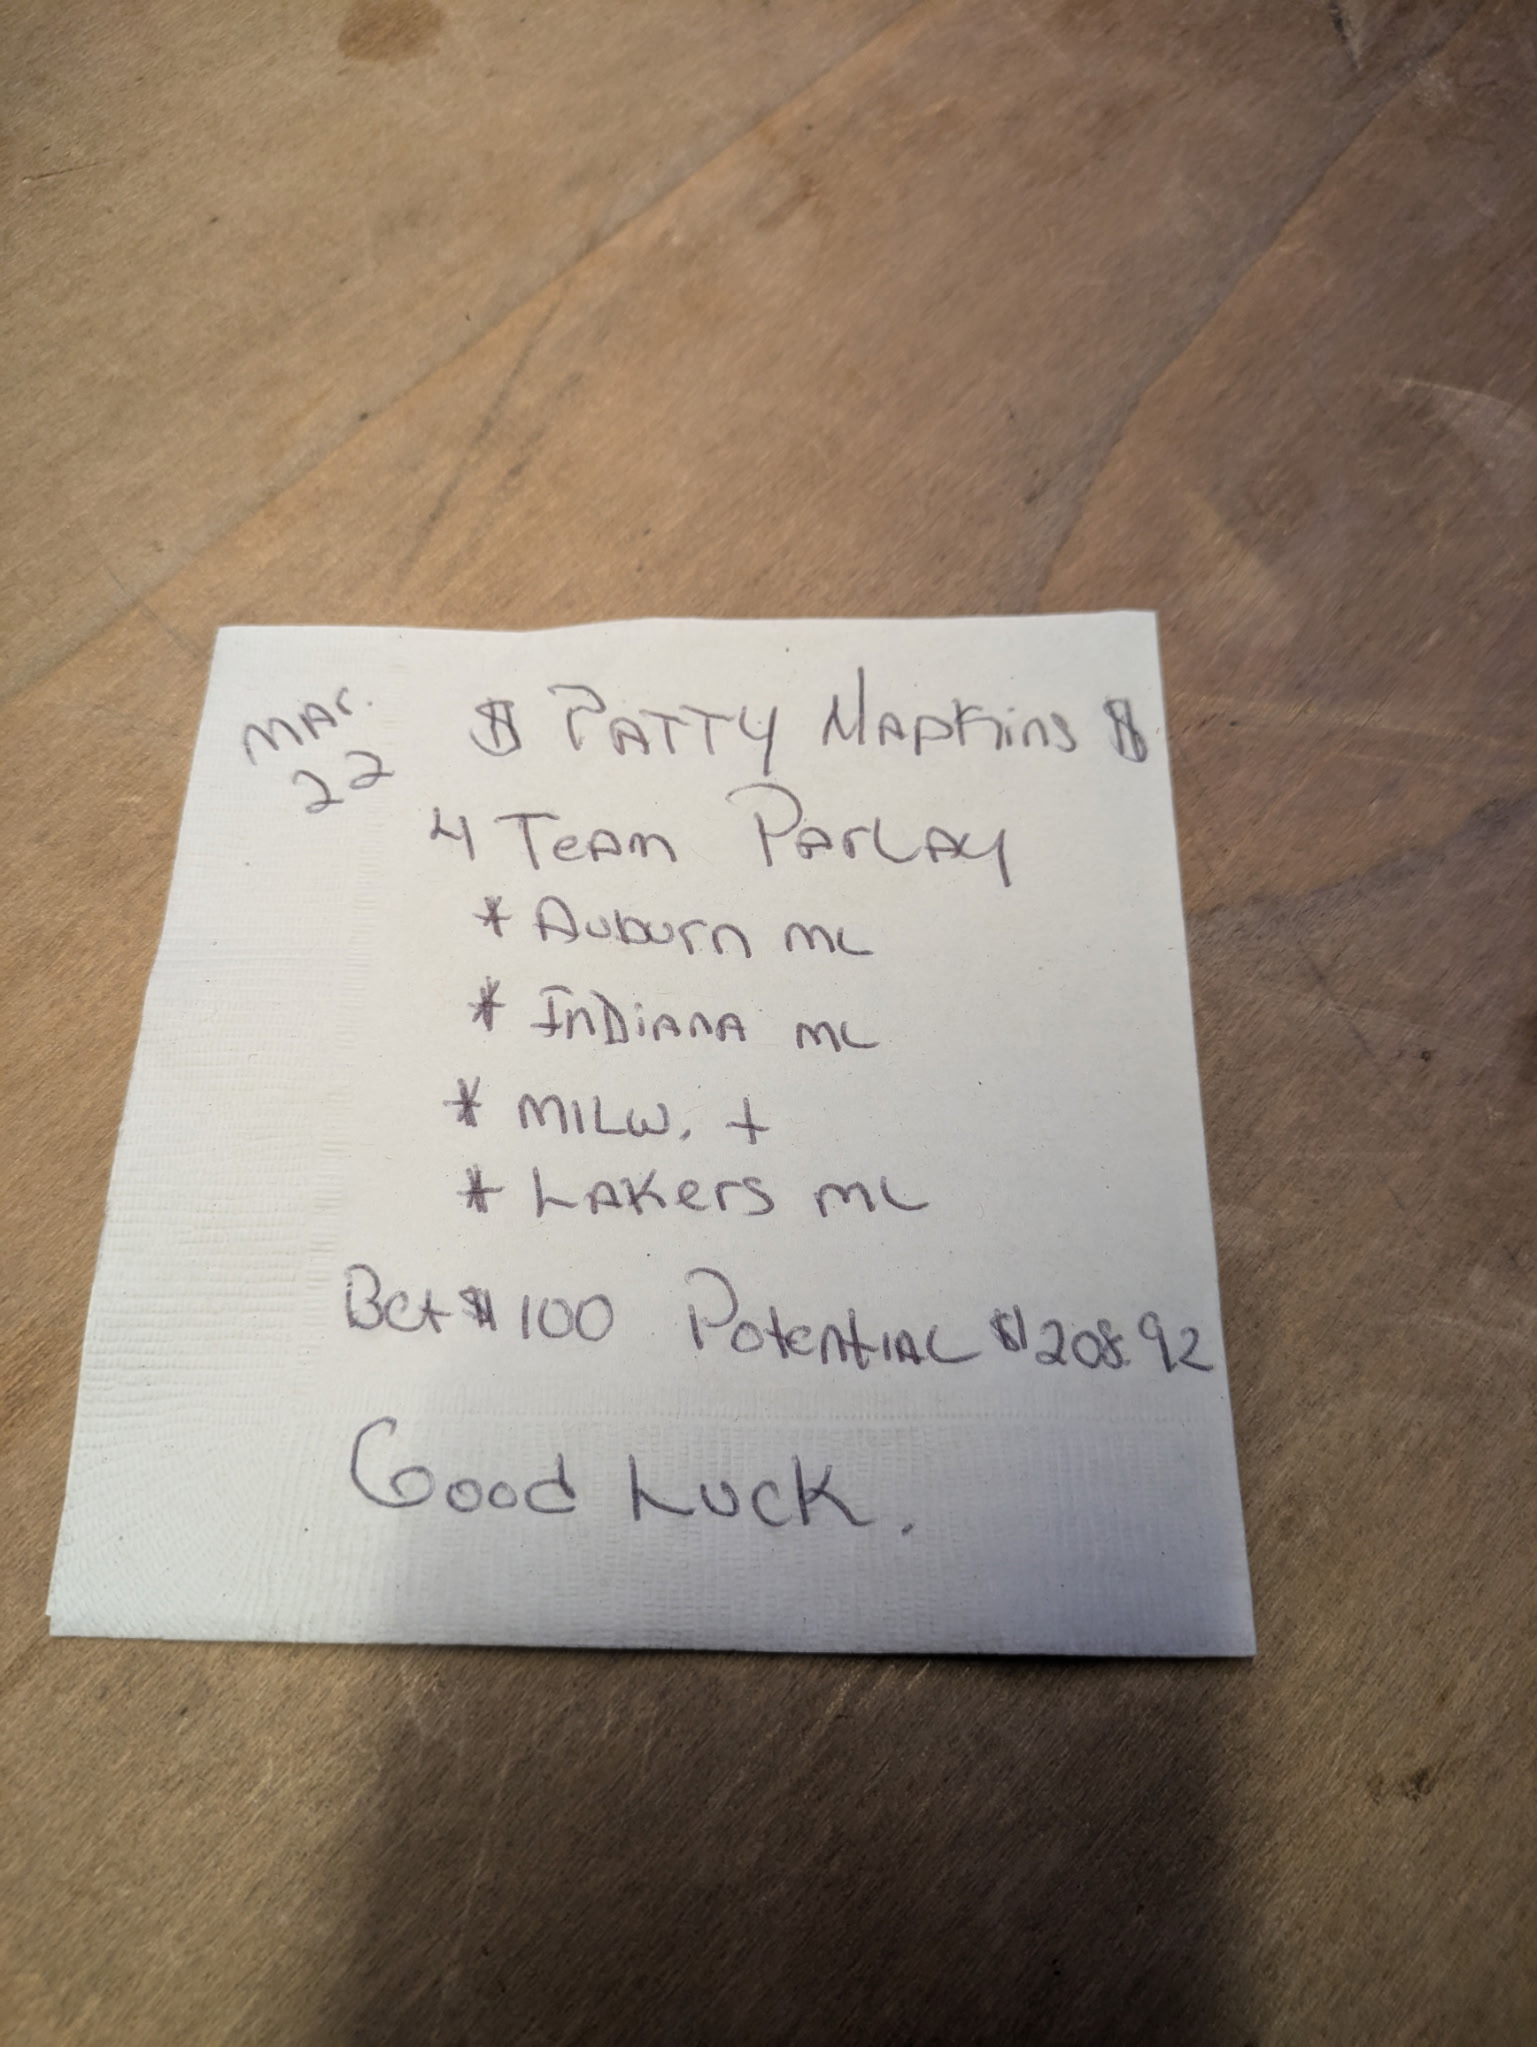 Mar. 22
$ Patty Napkins $
4 Team Parlay
* Auburn ML
* Indiana ML
* Milw. +
* Lakers ML
Bet $100 Potential $208.92
Good Luck.